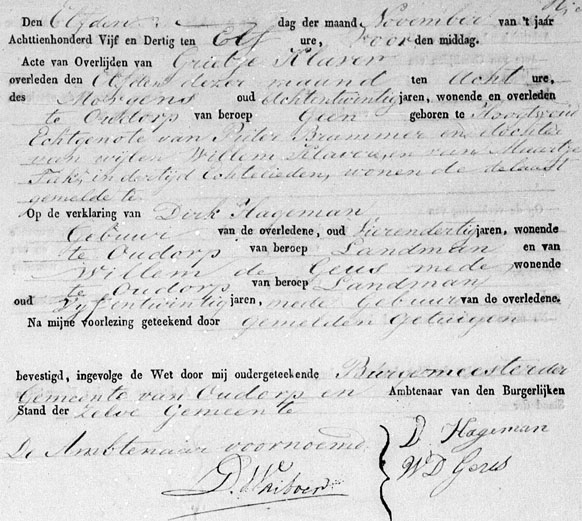 Den Elfden dag der maand November van 't jaar
Achttienhonderd Vijf en Dertig ten Elf ure, Voor den middag.
Acte van Overlijden van Grietje Klaver
overleden den Elfden dezer maand ten Acht ure,
des Morgens oud Achtentwintig jaren, wonende en overleden
te Oudorp van beroep Geen geboren te
Echtgenote van Pieter Brammer en dochter
van wijlen Willem Klaver, en van Maartje
in dertijd Echtelieden, wonende de laatst
gemelde te
Op de verklaring van Dirk Hageman
Gebuur van de overledene, oud Vierendertig jaren, wonende
te Oudorp van beroep Landman en van
Willem de Geus mede wonende
te Oudorp van beroep Landman
oud Vyfentwintig jaren, mede Gebuur van de overledene.
Na mijne voorlezing geteekend door gemelden Getuigen
bevestigd, ingevolge de Wet door mij oudergeteekende Burgemeester der
Gemeente van Oudorp en Ambtenaar van den Burgerlijken
Stand der Zelve Gemeente
De Ambtenaar voornoemd
D. Hageman
W D Geus